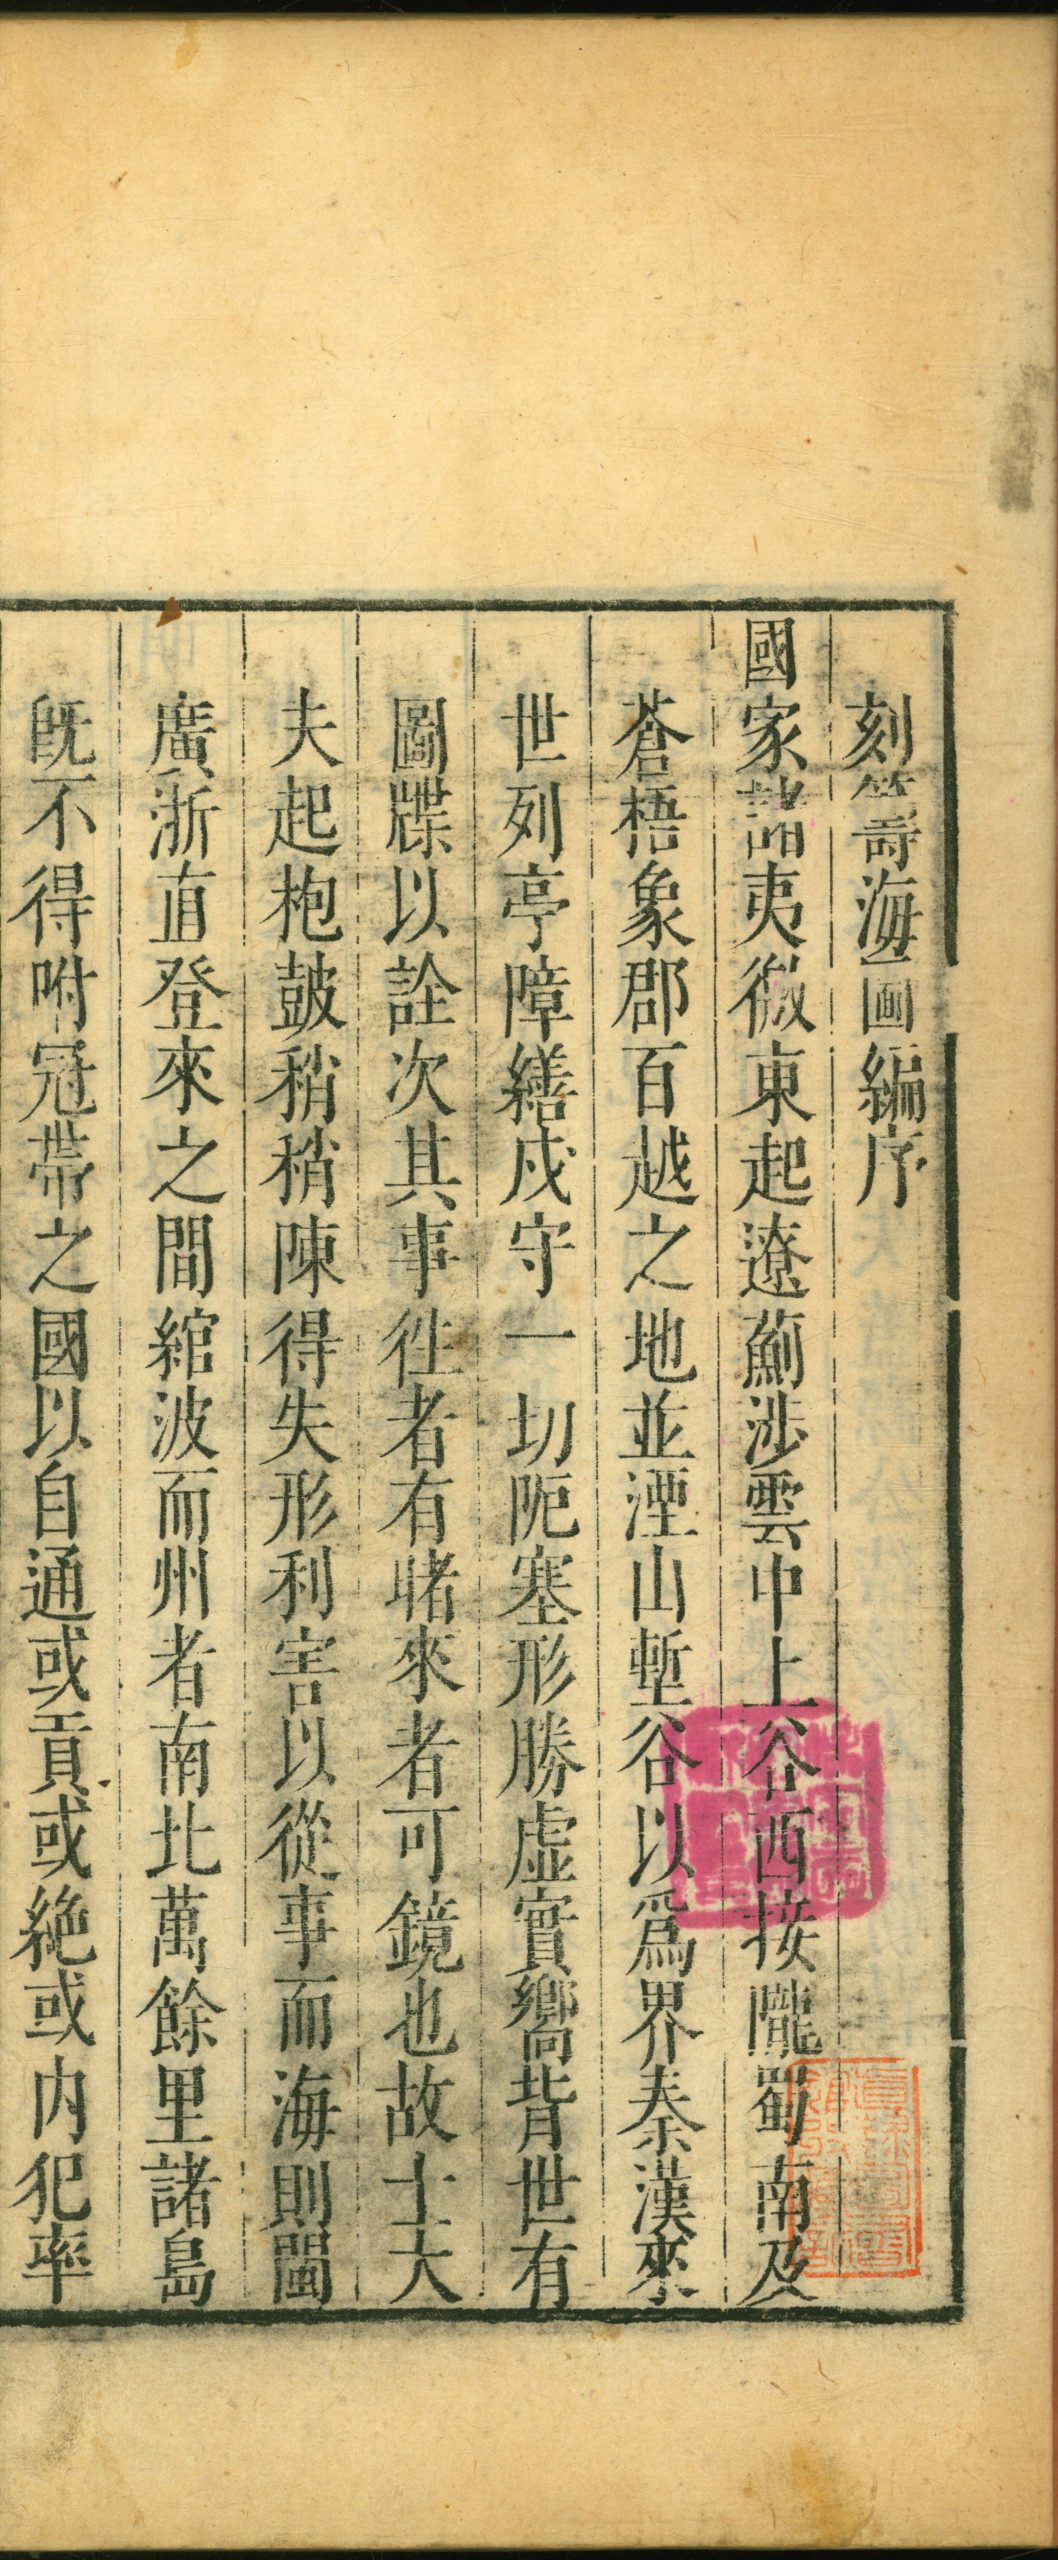 刻籌海圖編序
國家諸夷徼東起遼薊涉雲中上谷西接隴蜀南及
蒼梧象郡百越之地並湮山塹谷以爲界秦漢來
世列亭障繕戍守一切阨塞形勝虛實嚮背世有
圖牒以詮次其事徃者有睹來者可鏡也故士大
夫起枹鼓稍稍陳得失形利害以從事而海則閩
廣浙直登來之間綰波而州者南北萬餘里諸島
旣不得咐冠帶之國以自通或貢或絶或內犯率